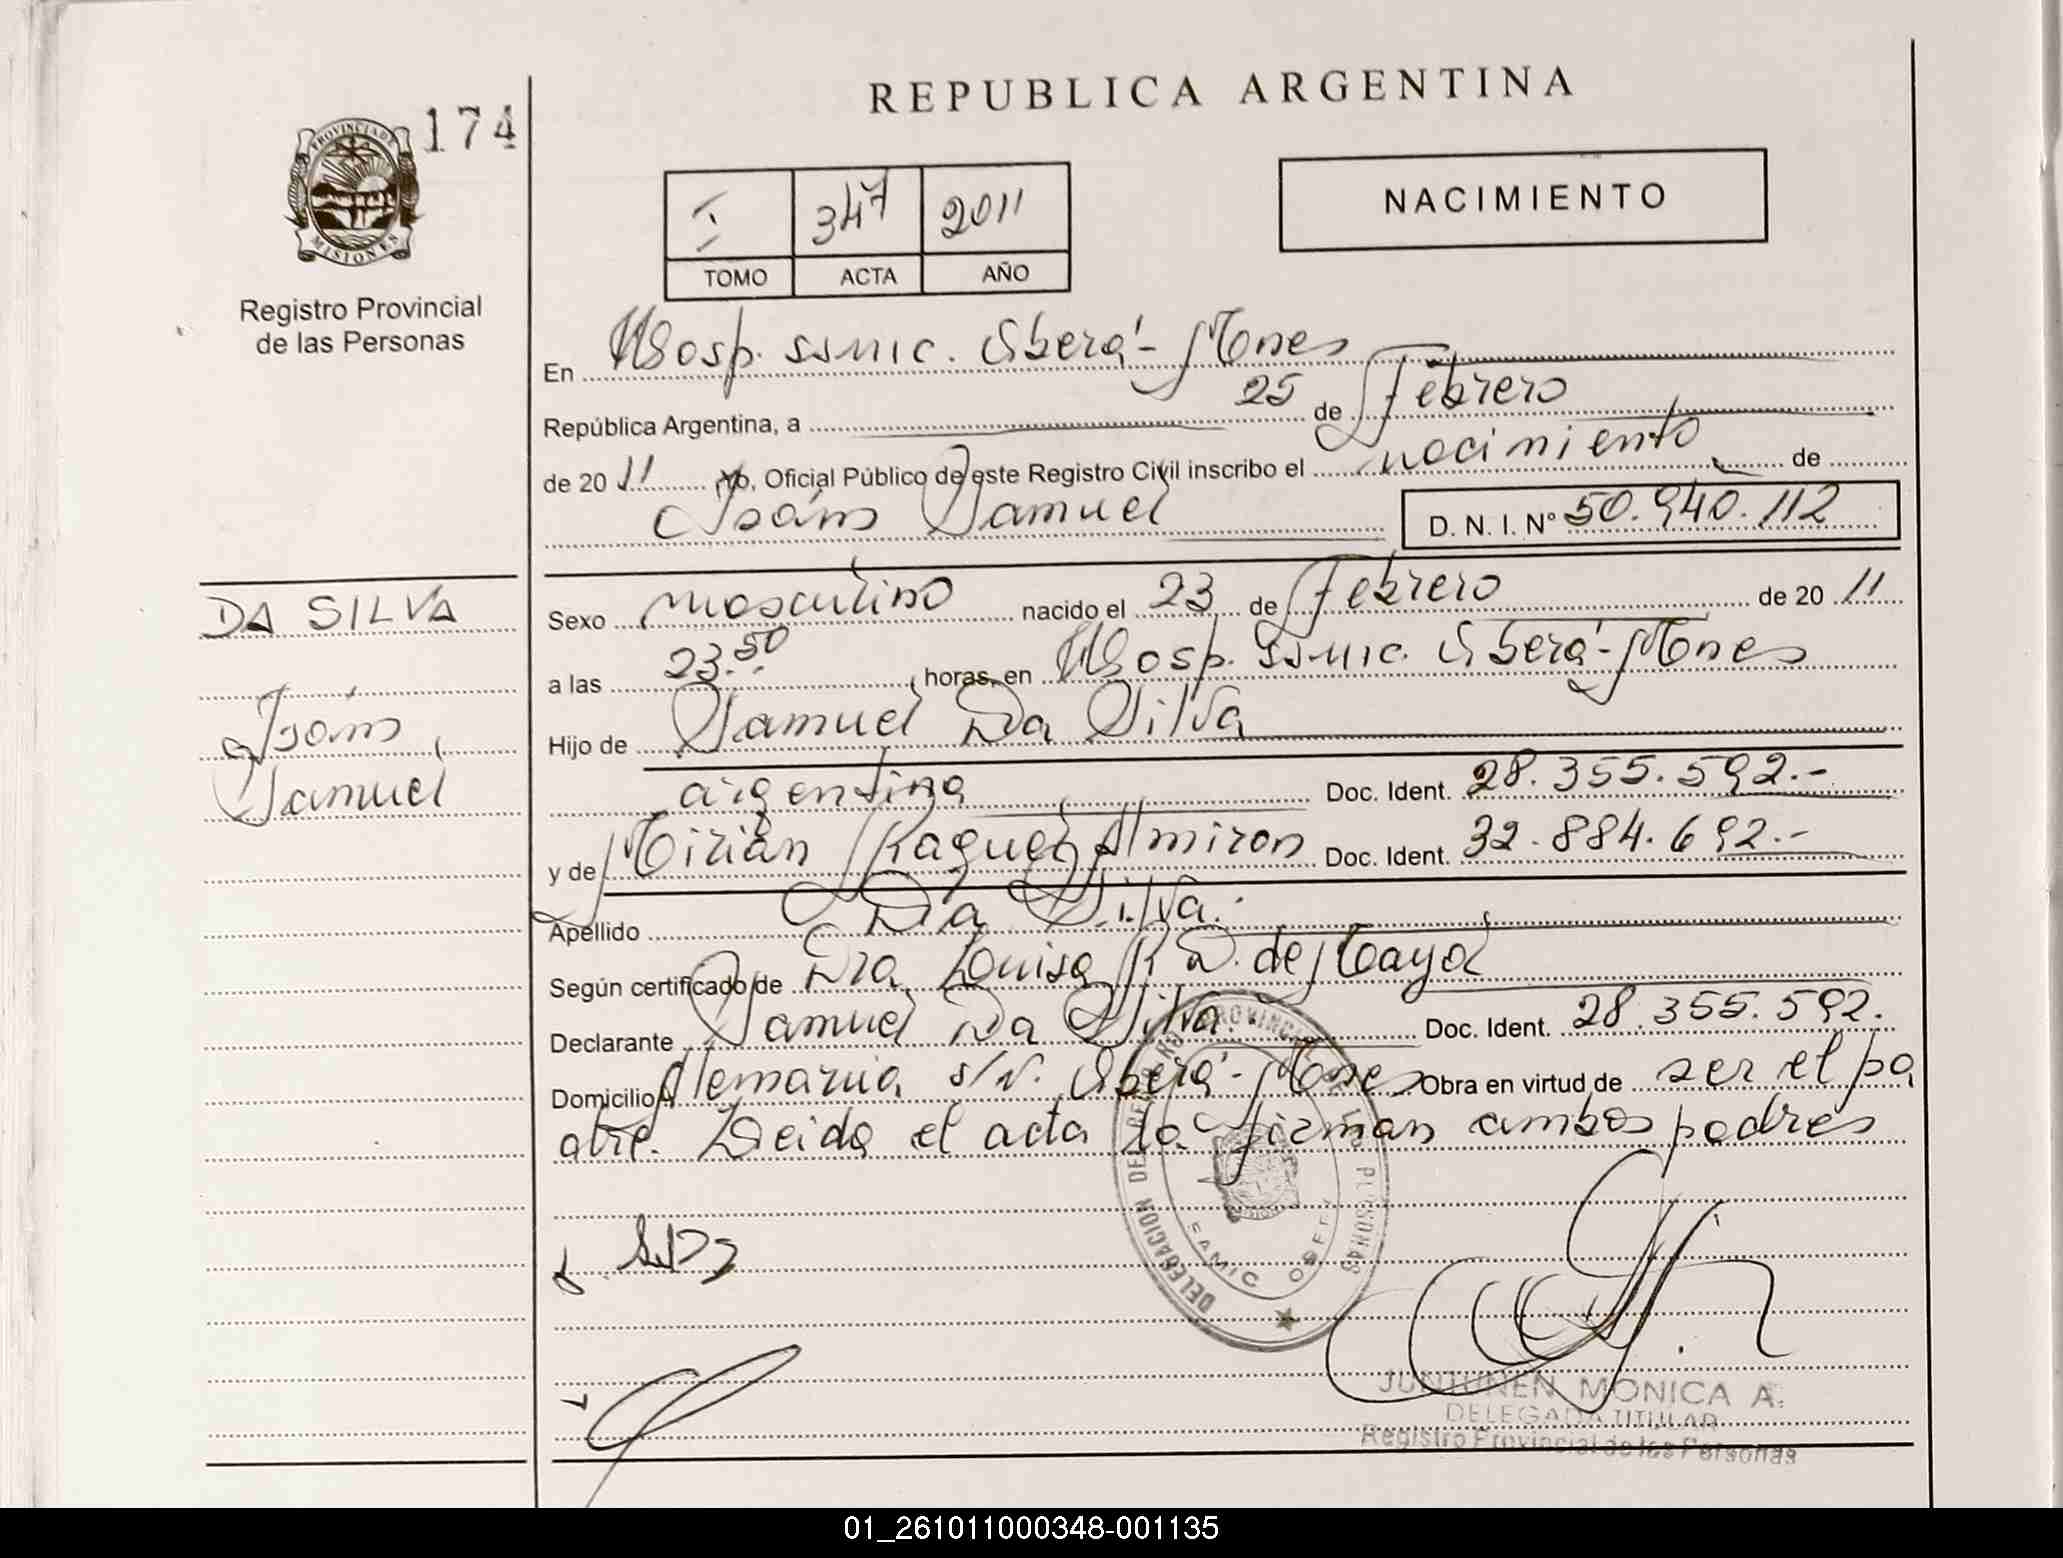 REPUBLICA ARGENTINA
174
PROVINCIA DE
MISIONES
Registro Provincial
de las Personas
I 347 2011
TOMO ACTA AÑO
NACIMIENTO
En Hosp. SSMIC. Oberá - Mones
República Argentina, a 25 de Febrero
de 20 11 Yo, Oficial Público de este Registro Civil inscribo el nacimiento de
Samuel
D. N. I. Nº 50.940.112
DA SILVA
Samuel
Sexo masculino nacido el 23 de Febrero de 20 11
a las 23.50 horas, en Hosp. SSMIC. Oberá - Mones
Hijo de Samuel Da Silva
argentina Doc. Ident. 28.355.592.-
y de Mirian Raquel Almiron Doc. Ident. 32.884.692.-
Apellido Da Silva.-
Según certificado de Dra. Luisa R D. de
Declarante Samuel Da Silva.- Doc. Ident. 28.355.592.
Domicilio Alemania s/N. Oberá - Mones Obra en virtud de ser el pa
dre. Leida el acta la firman ambos padres
DELEGACION DEL REGISTRO PROVINCIAL DE LAS PERSONAS
SAMIC OBERA
JUNTUNEN MONICA A.
DELEGADA TITULAR
Registro Provincial de las Personas
01_261011000348-001135